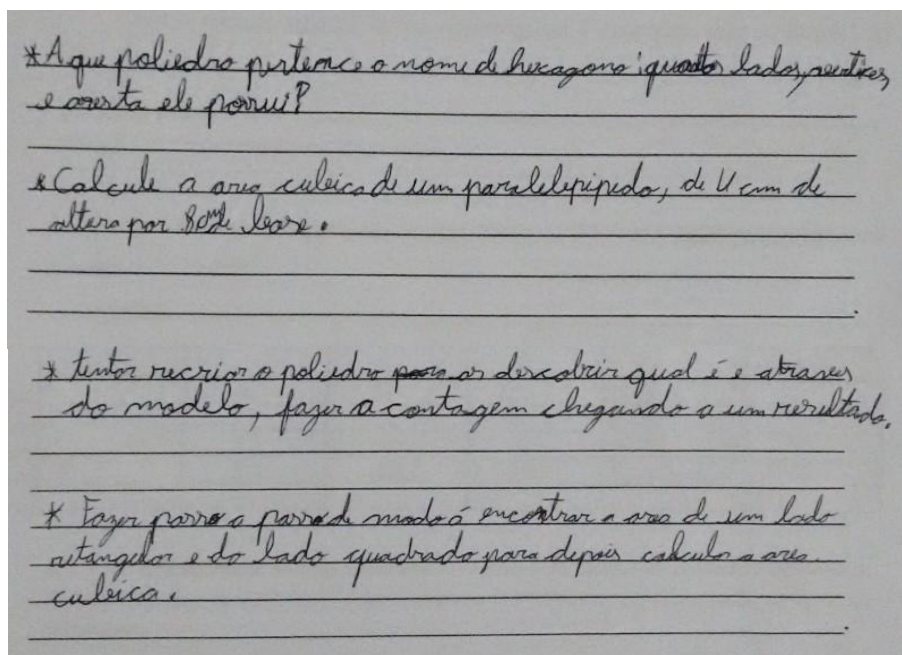 *A que poliedro pertence o nome de hexagono; quantos lados, vertices,
e aresta ele possui?
*Calcule a area cubica de um paralelepipedo, de 4 cm de
altura por 8cm de base.
* tentar recriar o poliedro para ao descobrir qual é e atraves
do modelo, fazer a contagem chegando a um resultado.
* Fazer passo a passo de modo á encontrar a area de um lado
retangular e do lado quadrado para depois calcular a area
cubica.